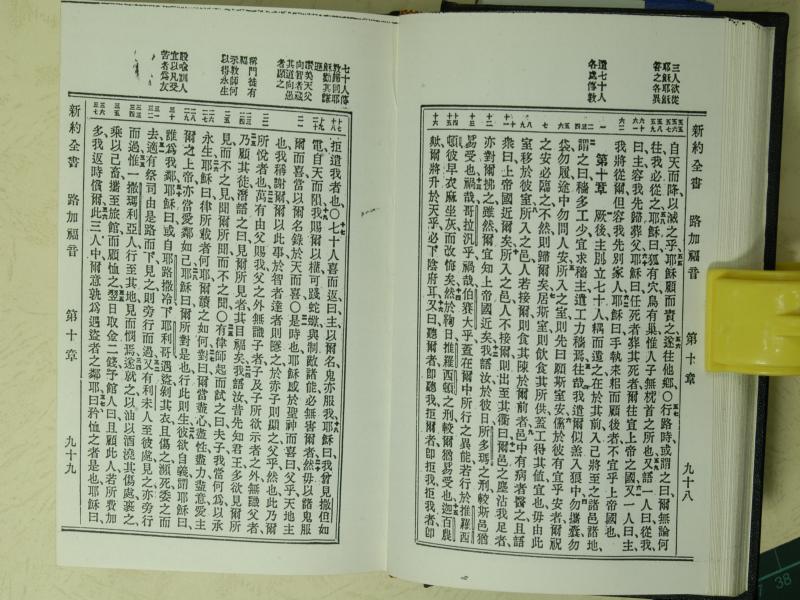 新約全書 路加福音 第十章 九十八
三人欲從
耶穌耶穌
答之各異
遣七十人
各處傳教
自天而降以滅之乎耶穌顧而責之遂往他鄉〇行路時或謂之曰爾無論何
往我必從之耶穌曰狐有穴鳥有巢惟人子無枕首之所也又語一人曰從我
曰主容我先歸葬父耶穌曰任死者葬其死者爾往宣上帝之國又一人曰主
我將從爾但容我先別家人耶穌曰手執耒耜而顧後者不宜乎上帝國也
第十章 厥後主別立七十人稱而遣之在於其前入己將至之諸邑諸地
謂之曰穡多工少宜求穡主遣工力穡焉往哉我遣爾似羔入狼中勿攜囊勿
袋勿履途中勿問人安所入之室則先曰願斯室安儻於彼有宜乎安者爾祝
之安必臨之不然則歸爾矣居斯室則飲食其所供蓋工得其值宜也毋由此
室移於彼室所入之邑人若接則食其陳於爾前者邑中有病者醫之且語
衆曰上帝國近爾矣所入之邑人不接爾則出至其衢曰爾邑之塵沾我足者
亦對爾拂之雖然爾宜知上帝國近矣我語汝於彼日所多瑪之刑較斯邑猶
易受也禍哉哥拉汎乎禍哉伯賽大乎蓋在爾中所行之異能若行於推羅西
頓彼早衣麻坐灰而改悔矣然於鞫日推羅西頓之刑較爾猶易受也迦百農
歟爾將升於天乎必下陰府耳又曰聽爾者即聽我拒爾者即拒我拒我者即
七十人傳
教歸回耶
穌勸其謙
遜
讚美天父
向智者藏
其道向愚
者顯之
稱門徒有
福
示教師何
以得永生
設喻訓人
宜以凡受
苦者為友
拒遣我者也〇七十人喜而返曰主以爾名鬼亦服我耶穌曰我曾見撒但如
電自天而隕我賜爾以權可踐蛇蠍與制敵諸能必無害爾者然毋以諸鬼服
爾而喜當以爾名錄於天而喜〇是時也耶穌感於聖神而喜曰父乎天地主
也我稱謝爾爾以此事於智者達者則隱之於赤子則顯之父乎然也此乃爾
所悅者也萬有由父賜我父之外無識子者子及子所欲示者之外無識父者
乃顧其徒潛語之曰見爾所見者其目福矣我語汝昔先知君王多欲見爾所
見而不之見聞爾所聞而不之聞〇有律師起而試之曰夫子我當何為以承
永生耶穌曰律所載者何耶爾讀之如何對曰爾當盡心盡性盡力盡意愛主
爾之上帝亦當愛鄰如己耶穌曰爾所對是也行此則生彼欲自義謂耶穌曰
誰為我鄰耶穌曰或自耶路撒冷下耶利哥遇盜剝其衣且傷之瀕死委之而
去適有祭司由是路而下見之則旁行而過又有利未人至彼處見之亦旁行
而過惟一撒瑪利亞人行至其地見而憫焉遂就之以油以酒澆其傷處裹之
乘以己畜攜至旅館而顧恤之翌日取金二錢予館人曰且顧此人若所費加
多我返時償爾此三人中爾意孰為遇盜者之鄰耶曰矜恤之者是也耶穌曰
新約全書 路加福音 第十章 九十九